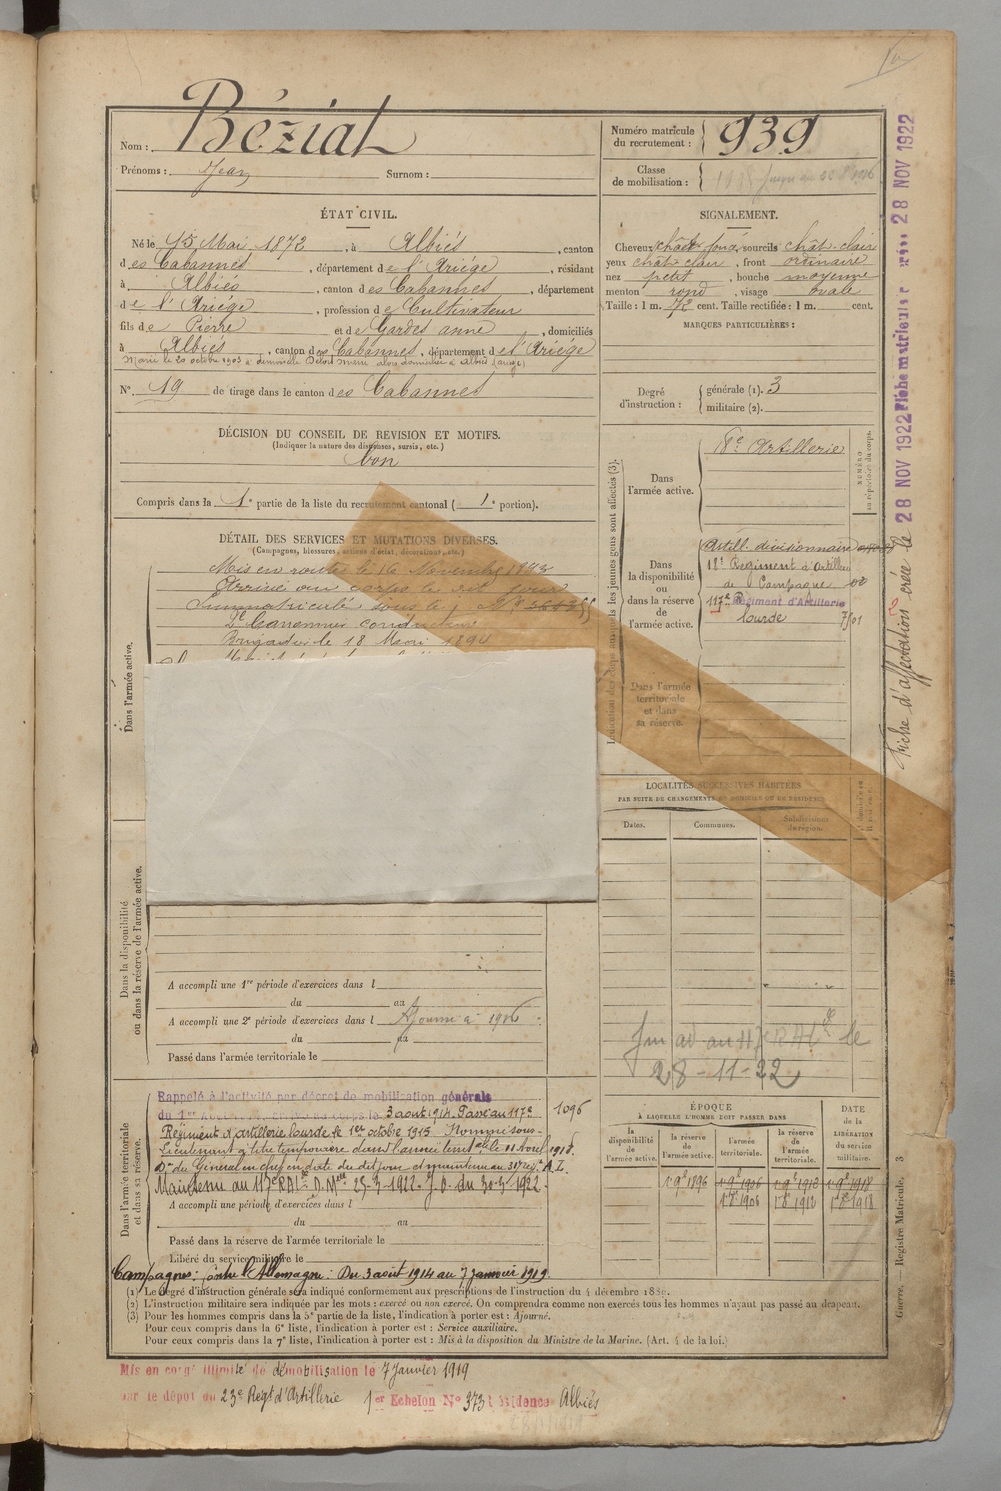 Béziat
Nom :
Prénoms : Jean Surnom :
Numéro matricule
du recrutement : 939
Classe
de mobilisation :
ÉTAT CIVIL.
Né le 15 Mai 1872, à Albiès, canton
des Cabannes, département de l'Ariège, résidant
à Albiès, canton des Cabannes, département
de l'Ariège, profession de Cultivateur
fils de Pierre et de Gardes anne, domiciliés
à Albiès, canton des Cabannes, département de l'Ariège
Marié le 20 octobre 1903 à demoiselle Marie domiciliée à Albiès (Ariège)
N° 19 de tirage dans le canton des Cabannes
SIGNALEMENT.
Cheveux chât foncé, sourcils chât-clair
yeux chât clair, front ordinaire
nez petit, bouche moyenne
menton rond, visage ovale
Taille : 1 m. 72 cent. Taille rectifiée : 1 m. cent.
MARQUES PARTICULIÈRES :
Degré
d'instruction :
générale (1). 3
militaire (2).
DÉCISION DU CONSEIL DE REVISION ET MOTIFS.
(Indiquer la nature des dispenses, sursis, etc.)
bon
Compris dans la 1e partie de la liste du recrutement cantonal (1e portion).
DÉTAIL DES SERVICES ET MUTATIONS DIVERSES.
(Campagnes, blessures, actions d'éclat, décorations, etc.)
Mis en route le 16 Novembre 1893
Arrivé au corps le dit jour
Immatriculé sous le N°
2e Canonnier conducteur
Brigadier le 18 Mai 1894
Dans l'armée active.
Indication des corps auxquels les jeunes gens sont affectés (3).
Dans
l'armée active.
18e Artillerie
NUMÉRO
au répertoire du corps.
Dans
la disponibilité
ou
dans la réserve
de
l'armée active.
Artill. divisionnaire
18e Régiment d'Artillerie
de Campagne
117e Régiment d'Artillerie
lourde 7501
Dans l'armée
territoriale
et dans
sa réserve.
LOCALITÉS SUCCESSIVES HABITÉES
PAR SUITE DE CHANGEMENTS DE DOMICILE OU DE RÉSIDENCE
Dates.
Communes.
Subdivisions
de région.
Fiche d'affectation créée le 28 NOV 1922 Fiche matricule 28 NOV 1922
Dans la disponibilité
ou dans la réserve de l'armée active.
A accompli une 1re période d'exercices dans l
du au
A accompli une 2e période d'exercices dans l Ajourné à 1906
du au
Passé dans l'armée territoriale le
au 117e RAL le
28-11-22
Dans l'armée territoriale
et dans sa réserve.
Rappelé à l'activité par décret de mobilisation générale
du 1er Août corps le 3 août 1914. Passé au 117e 1096
Régiment d'artillerie lourde le 1er octobre 1915 Nommé sous-
Lieutenant à titre temporaire dans l'armée territale le 11 avril 1918.
Don du Général en chef en date du dit jour et maintenu au 317 régt A. L.
Maintenu au 117e RAL D. Melle 25-3-1922. J. O. du 30-3-1922.
A accompli une période d'exercices dans l
du au
Passé dans la réserve de l'armée territoriale le
Libéré du service militaire le
Campagnes : contre l'Allemagne : Du 3 août 1914 au 7 janvier 1919.
ÉPOQUE
À LAQUELLE L'HOMME DOIT PASSER DANS
DATE
de la
LIBÉRATION
du service
militaire.
la
disponibilité
de
l'armée active.
la réserve
de
l'armée active.
l'armée
territoriale.
la réserve
de
l'armée
territoriale.
1 9e 1896 1 9e 1906 1 9e 1912 1 9e 1918
1 8e 1906 1 8e 1912 1 8e 1918
Guerre. — Registre Matricule. 3
(1) Le degré d'instruction générale sera indiqué conformément aux prescriptions de l'instruction du 4 décembre 1889.
(2) L'instruction militaire sera indiquée par les mots : exercé ou non exercé. On comprendra comme non exercés tous les hommes n'ayant pas passé au drapeau.
(3) Pour les hommes compris dans la 5e partie de la liste, l'indication à porter est : Ajourné.
Pour ceux compris dans la 6e liste, l'indication à porter est : Service auxiliaire.
Pour ceux compris dans la 7e liste, l'indication à porter est : Mis à la disposition du Ministre de la Marine. (Art. 4 de la loi.)
Mis en congé illimité de démobilisation le 7 Janvier 1919
par le dépôt du 23e Régt d'Artillerie 1er Echelon N° 373 résidence Albiès